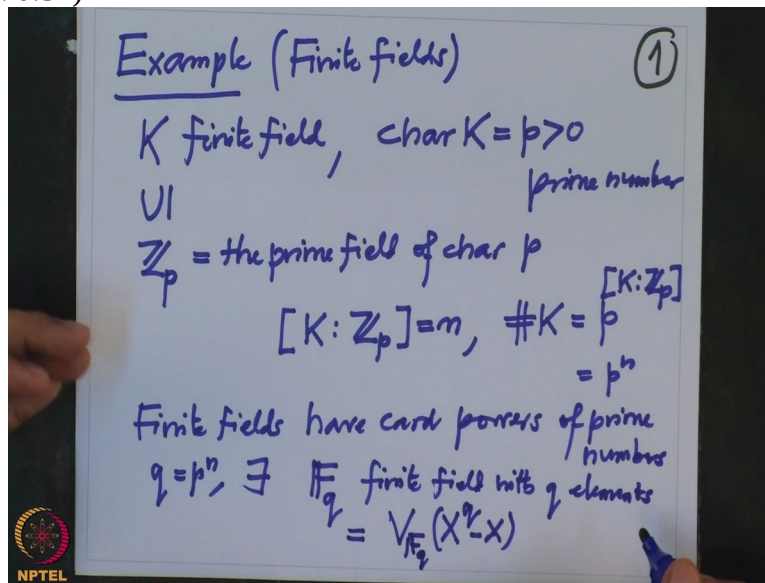 Example (Finite fields) 1
K finite field, char K = p>0
prime number
∪|
ℤ_p = the prime field of char p
[K:ℤ_p]=n, #K = p^[K:ℤ_p]
= p^n
Finite fields have card powers of prime
numbers
q=p^n, ∃ 𝔽_q finite field with q elements
= V_𝔽_q(X^q-X)
NPTEL